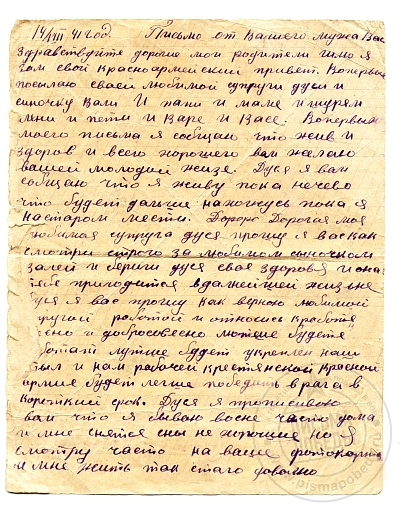 14/VIII 41 год. Письмо от Вашего мужа Вас
Здравствуйте дорогие мои родители шлю я
вам свой красноармейский привет. Вопервых
посылаю своей любимой супруги дуси и
синочку Вали И папи и маме и шурям
мени и пети и Варе и Васе. Вопервых
моего письма я собщаю что жив и
здоров и всего хорошего вам желаю
вашей молодой жизе. Дуся я вам
собщаю что я живу пока нечево
что будет дальше нахожусь пока я
настаром месте. Дорого Дорогая моя
любимая супруга дуся прошу я вас как
смотри строго за любимом синочком
Валей и береги дуся свае здоровья
тебе приходится вдальнейшей жизне
дуся я вас прошу как верною любимой
работой и относись кработе
и добросовесно лютше будете
лутше будет укреплен наш
тыл и нам рабочей крестянской Красной
армие будет легше победить врага в
короткий срок. Дуся я прописиваю
вам что я бываю восне часто дома
и мне снятся сны не хорошие но я
смотрю часто на ваше фотокарто
и мне жить так стало
www.pismapobed.ru